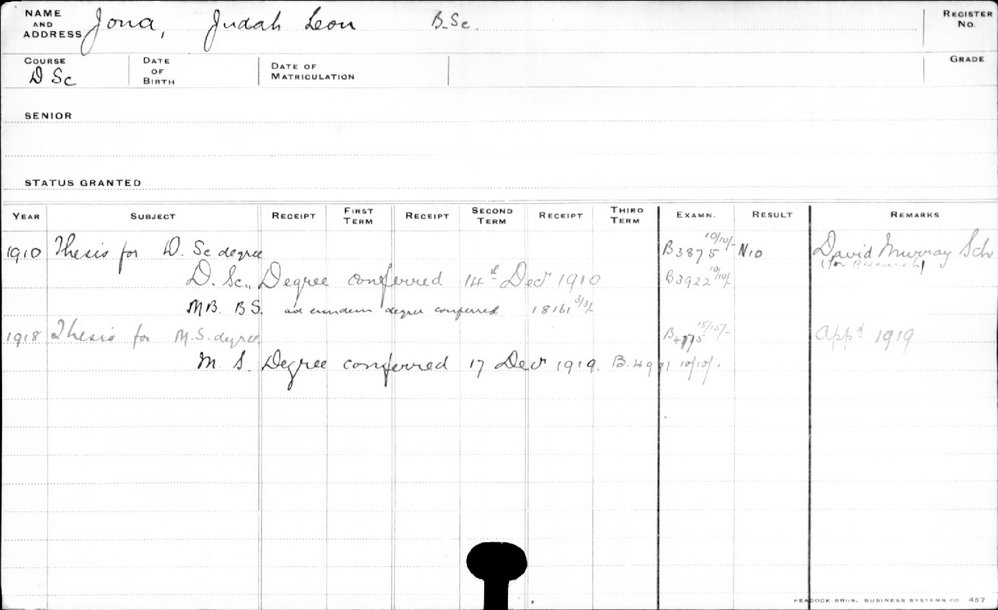 NAME AND ADDRESS Jona, Judah Leon B.Sc. REGISTER No.
COURSE D Sc DATE OF BIRTH DATE OF MATRICULATION GRADE
SENIOR
STATUS GRANTED
YEAR SUBJECT RECEIPT FIRST TERM RECEIPT SECOND TERM RECEIPT THIRD TERM EXAMN. RESULT REMARKS
1910 Thesis for D. Sc degree B3875 10/10/- N10 David Murray Sch
(for Research)
D. Sc., Degree conferred 14th Decr 1910 B3922 10/10/-
M.B. B.S. ad eundem degree conferred 18161 3/3/-
1918 Thesis for M.S. degree 15/15/- Appd 1919
M. S. Degree conferred 17 Decr 1919. 10/10/-
PEACOCK BROS. BUSINESS SYSTEMS CO 467